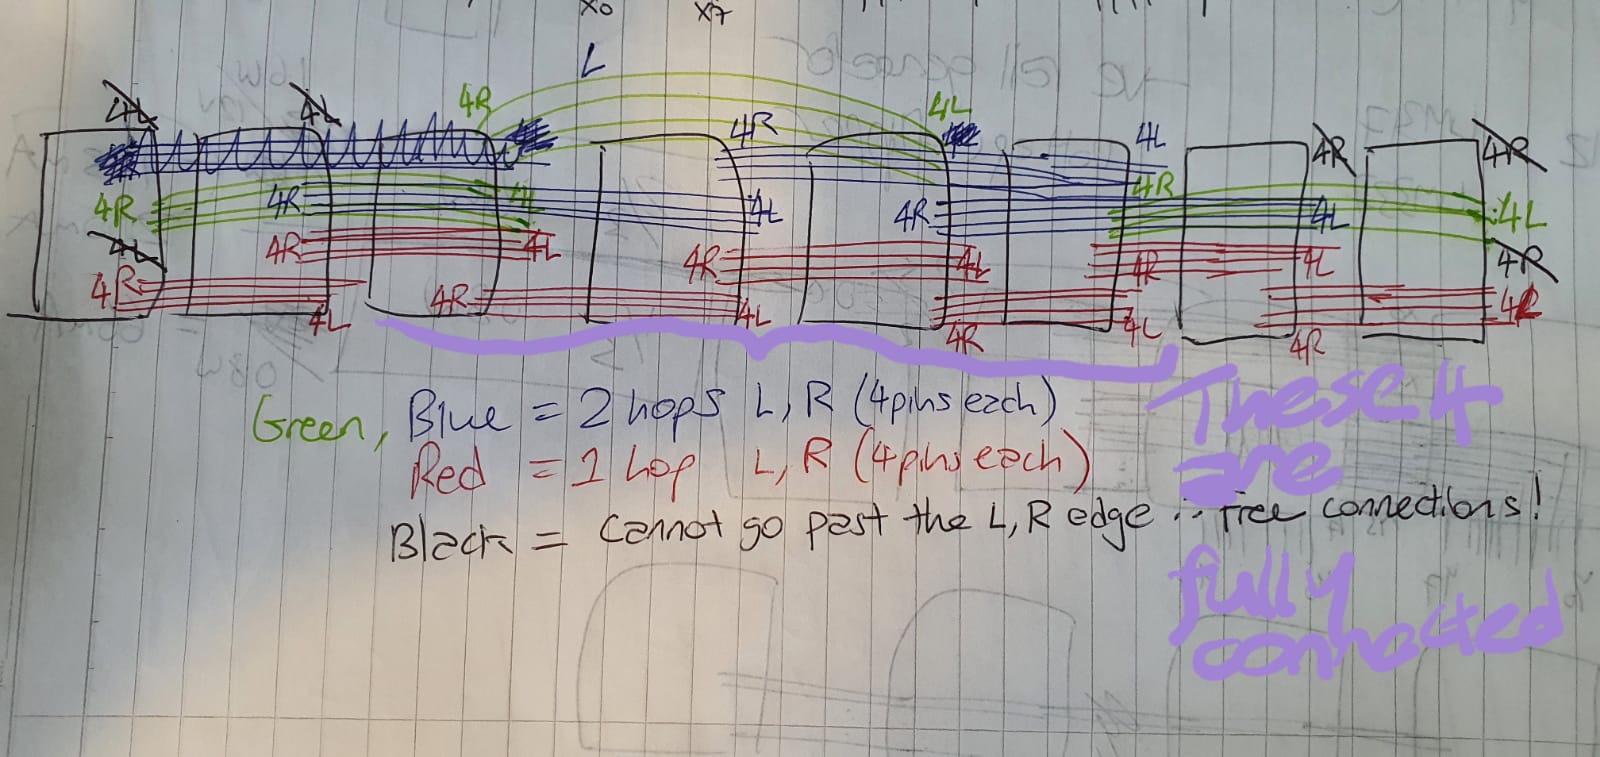 X0 X7
L
4L 4L 4R 4L
4R 4L 4R 4R
4R 4R 4L 4L 4R 4R 4L 4L
4L 4R 4L 4R 4L 4R 4L 4R
4R 4L 4R 4L 4R 4L 4R 4L
Green, Blue = 2 hops L, R (4pins each)
Red = 1 hop L, R (4pins each)
Black = Cannot go past the L, R edge ∴ Free connections!
These 4
are
fully
connected